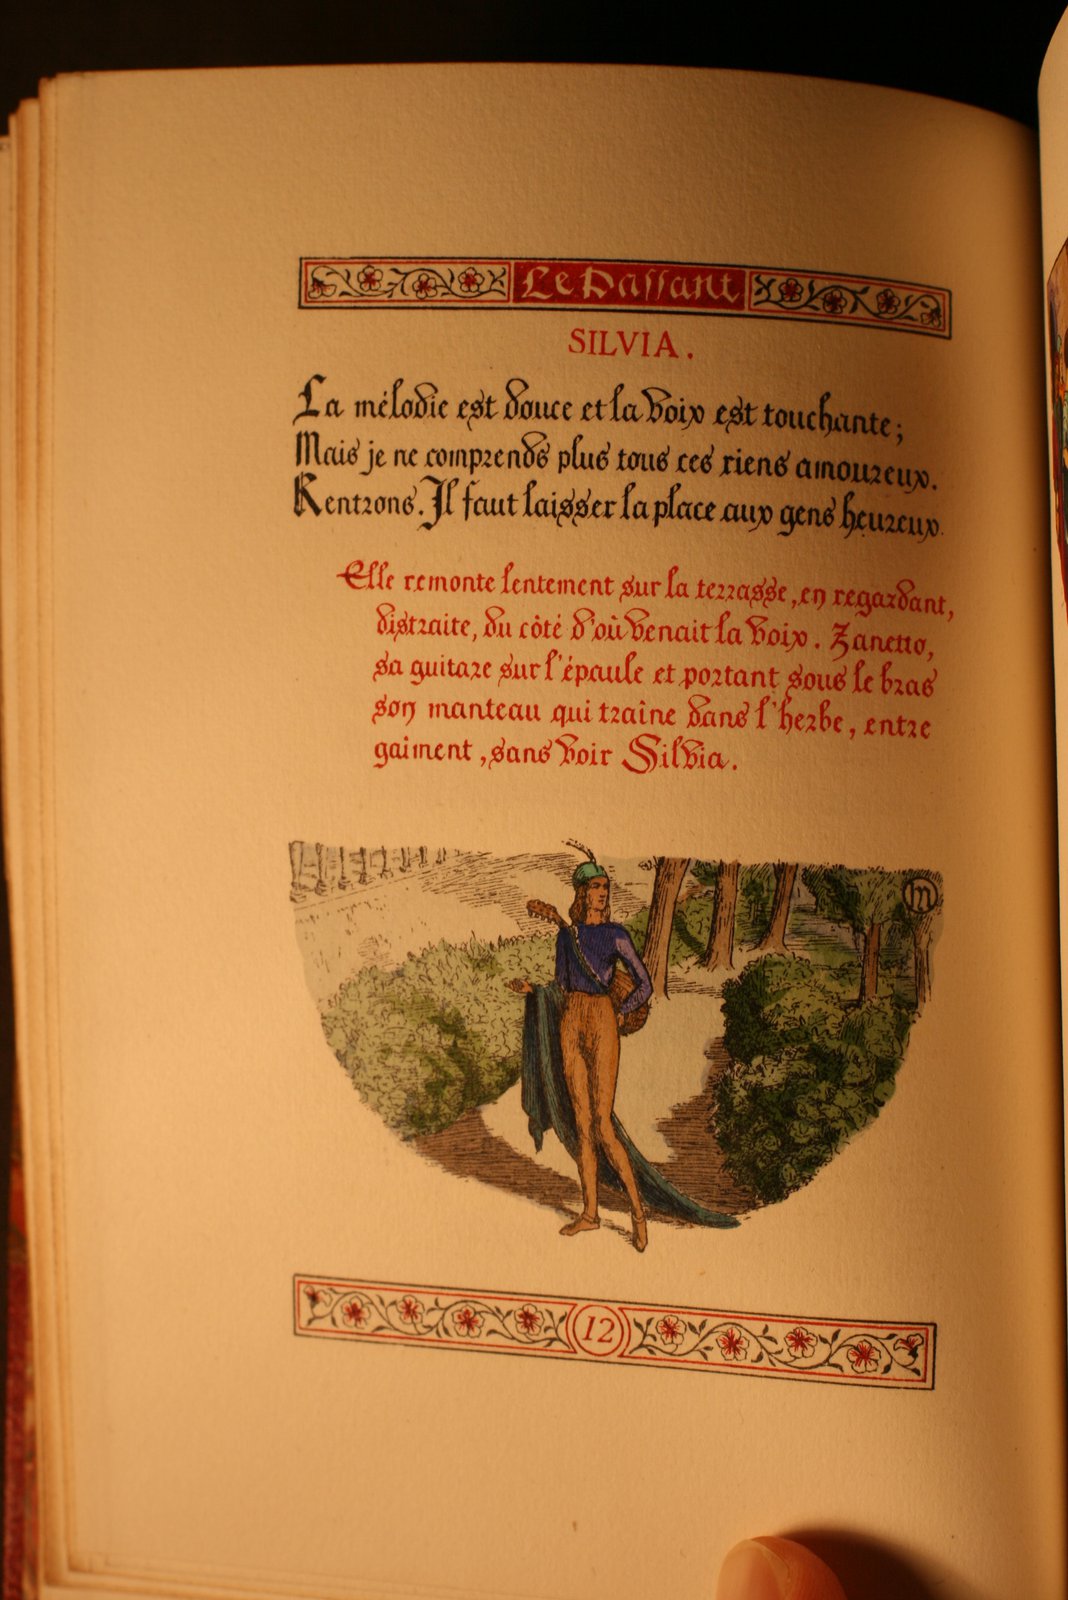 Le Passant
SILVIA.
La mélodie est douce et la voix est touchante;
Mais je ne comprends plus tous ces riens amoureux.
Rentrons. Il faut laisser la place aux gens heureux.
Elle remonte lentement sur la terrasse, en regardant,
distraite, du côté d'où venait la voix. Zanetto,
sa guitare sur l'épaule et portant sous le bras
son manteau qui traîne dans l'herbe, entre
gaiment, sans voir Silvia.
M
12